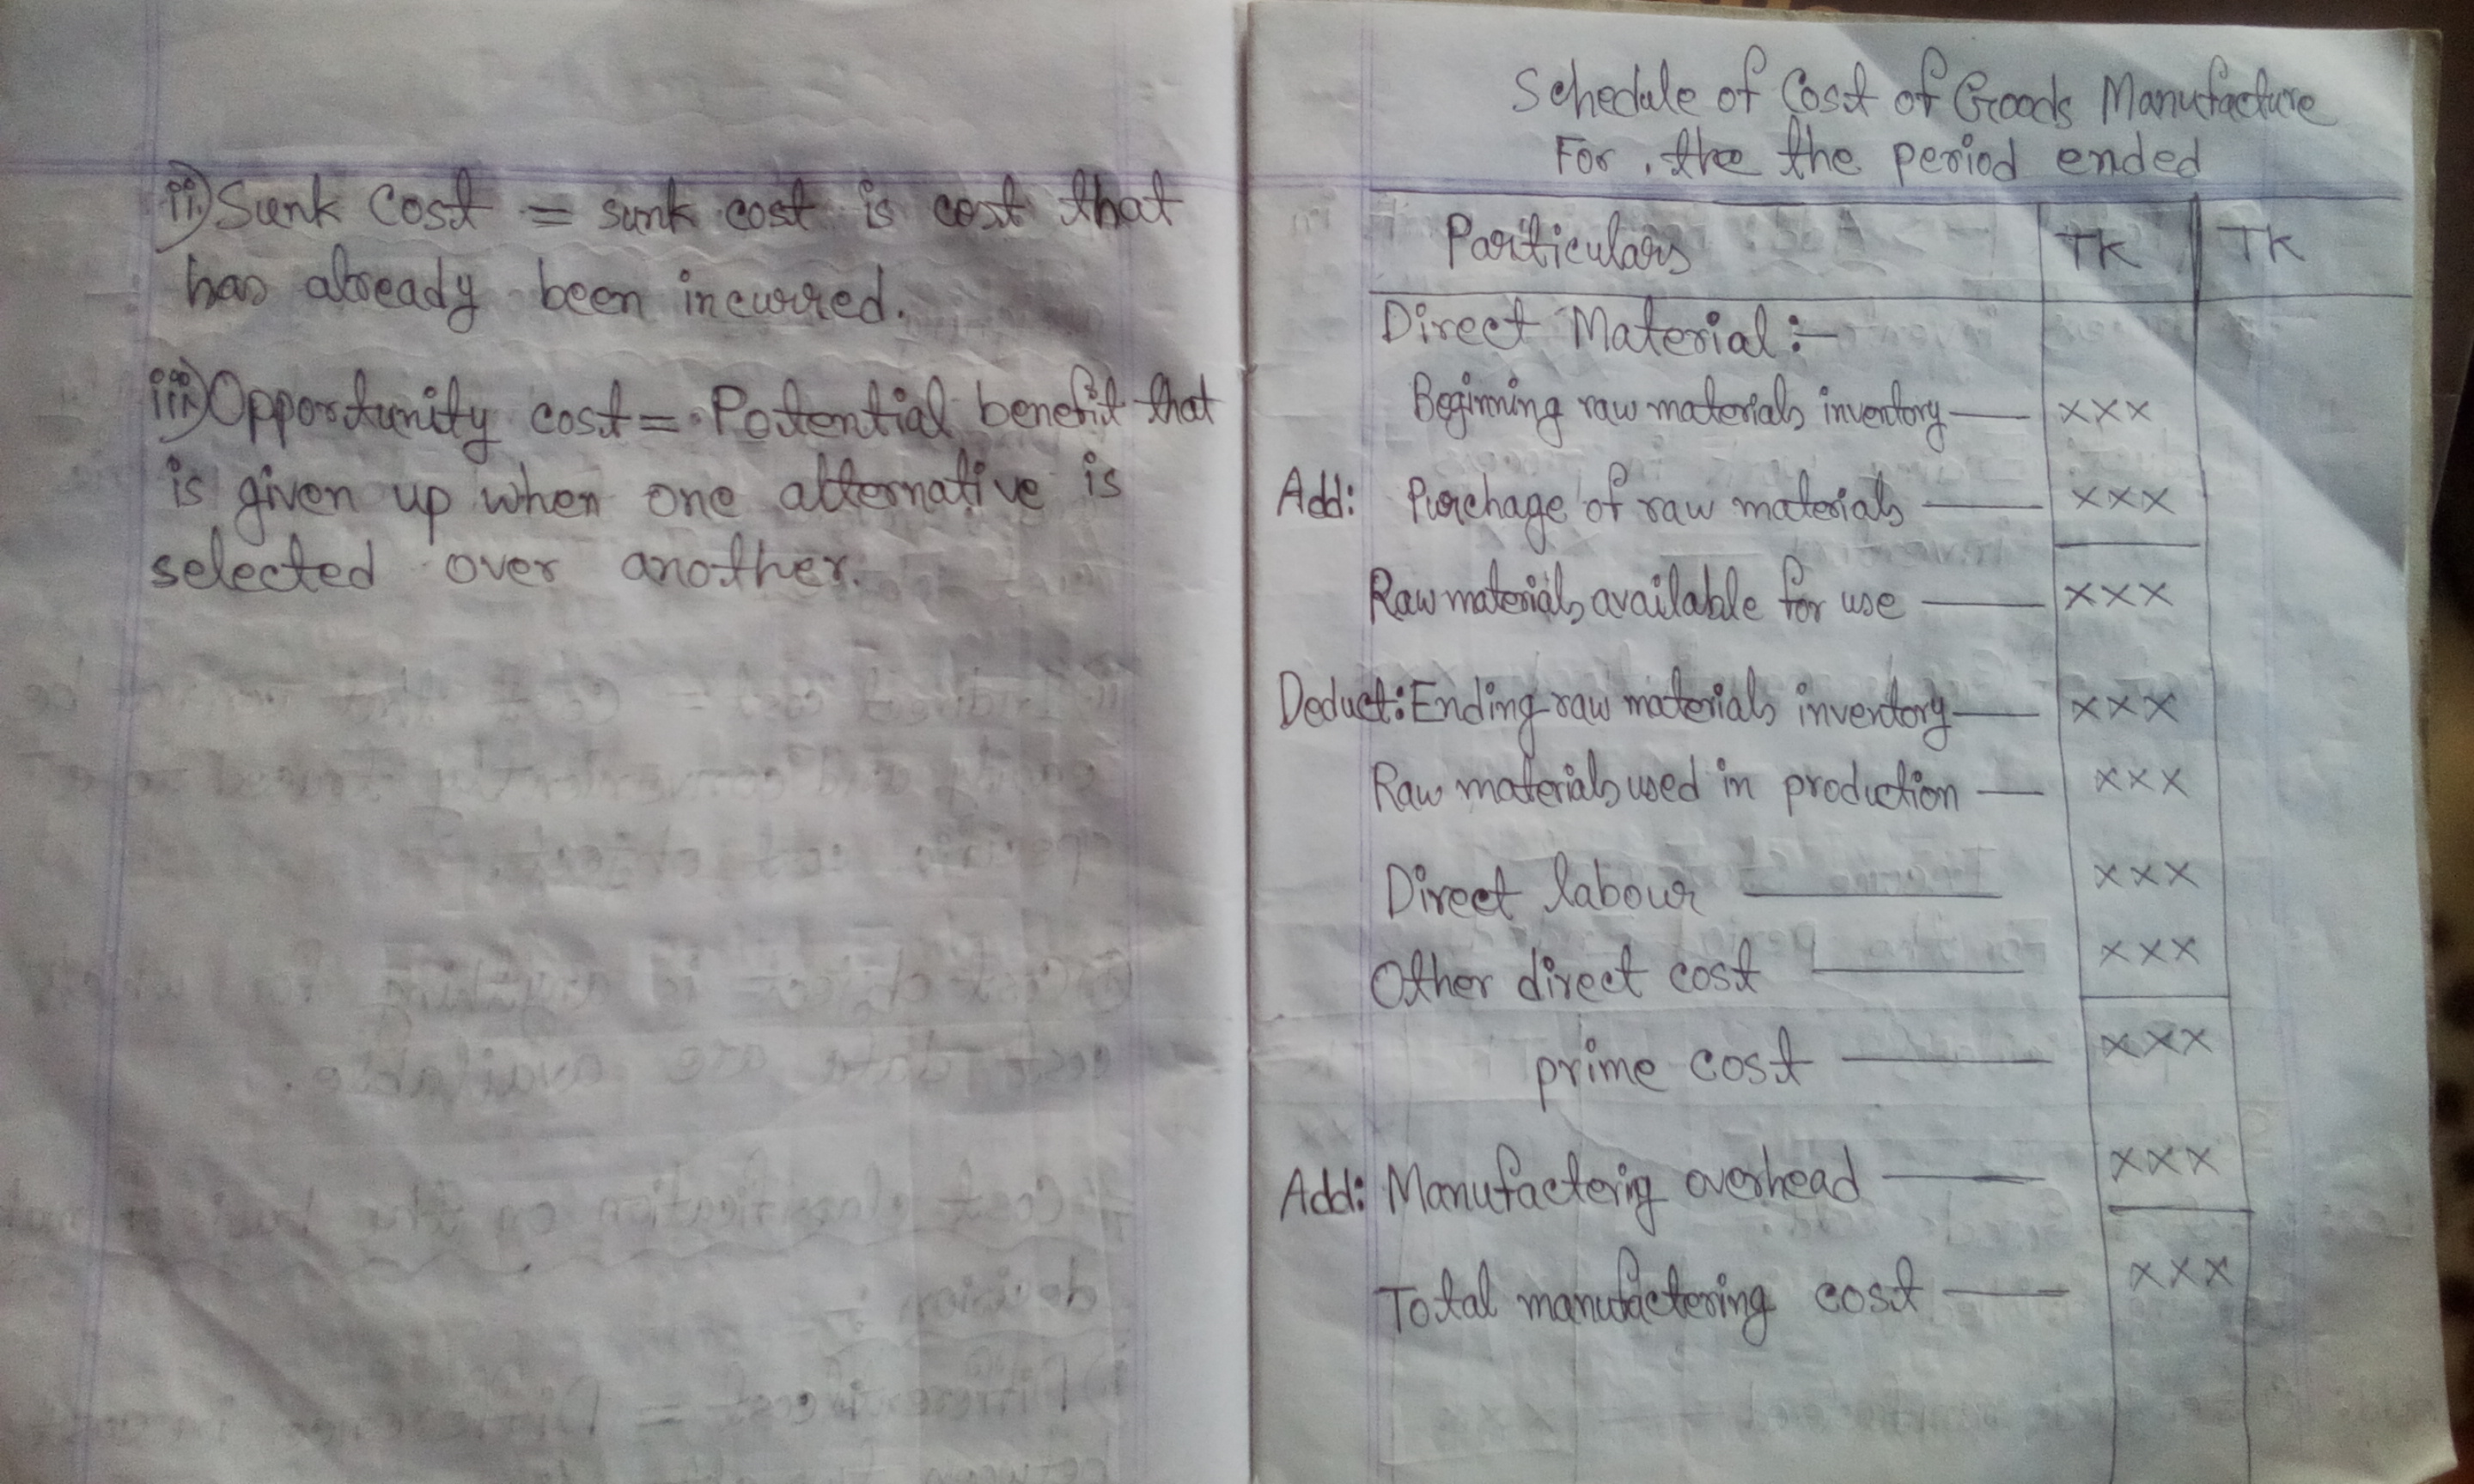 ii) Sunk Cost = sunk cost is cost that
has already been incurred.
iii) Opportunity cost = Potential benefit that
is given up when one alternative is
selected over another.
Schedule of Cost of Goods Manufacture
For the the period ended
Particulars TK TK
Direct Material :-
Beginning raw materials inventory — xxx
Add: Purchage of raw materials — xxx
Raw materials available for use — xxx
Deduct: Ending raw materials inventory — xxx
Raw materials used in production — xxx
Direct labour — xxx
Other direct cost — xxx
prime cost — xxx
Add: Manufactering overhead — xxx
Total manufactering cost — xxx